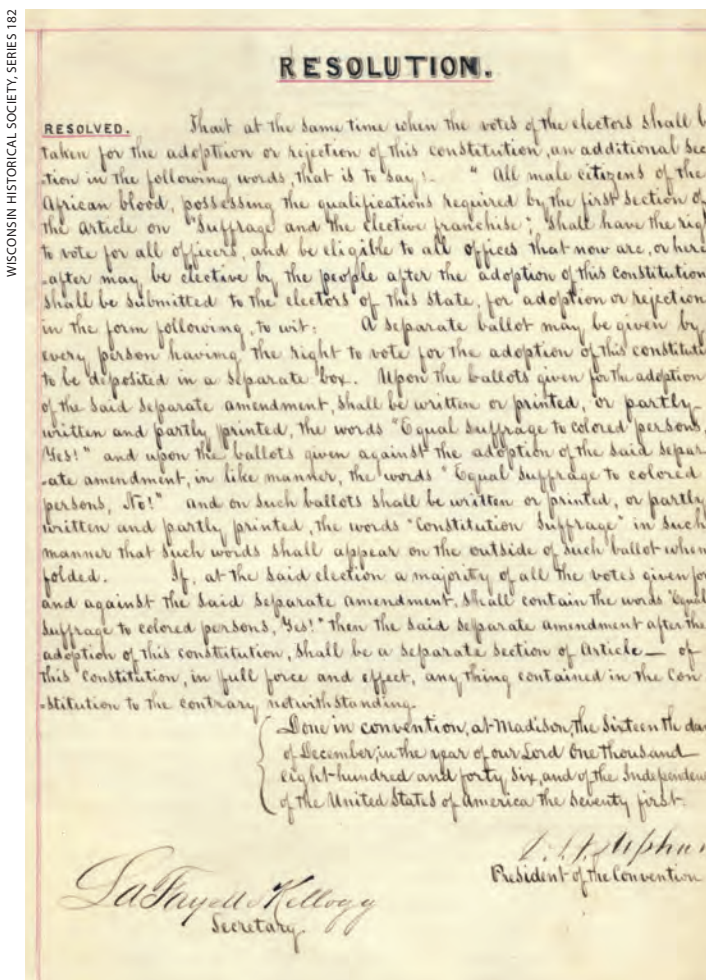 WISCONSIN HISTORICAL SOCIETY, SERIES 182
RESOLUTION.
RESOLVED. That at the same time when the votes of the electors shall b
taken for the adoption or rejection of this constitution, an additional sec
-tion in the following words, that is to say:- " All male citizens of the
African blood, possessing the qualifications required by the first section of
the article on "Suffrage and the elective franchise", shall have the rig
to vote for all officers, and be eligible to all offices that now are, or here
-after may be elective by the people after the adoption of this Constitution
shall be submitted to the electors of this State, for adoption or rejection
in the form following, to wit: A separate ballot may be given by
every person having the right to vote for the adoption of this constituti
to be deposited in a separate box. Upon the ballots given for the adoption
of the said separate amendment, shall be written or printed, or partly
written and partly printed, the words "Equal suffrage to colored persons,
Yes!" and upon the ballots given against the adoption of the said separ
-ate amendment, in like manner, the words "Equal suffrage to colored
persons, No!" and on such ballots shall be written or printed, or partly
written and partly printed, the words "Constitution Suffrage" in such
manner that such words shall appear on the outside of such ballot when
folded. If, at the said election a majority of all the votes given for
and against the said separate amendment, shall contain the words "Equal
suffrage to colored persons, Yes!" then the said separate amendment after the
adoption of this constitution, shall be a separate section of Article — of
this Constitution, in full force and effect, any thing contained in the Con
-stitution to the contrary notwithstanding.
Done in convention, at Madison, the Sixteenth da
of December, in the year of our Lord One thousand
eight-hundred and forty six, and of the Independen
of the United States of America the seventy first.
Upha
President of the Convention
LaFayette Kellogg
Secretary.